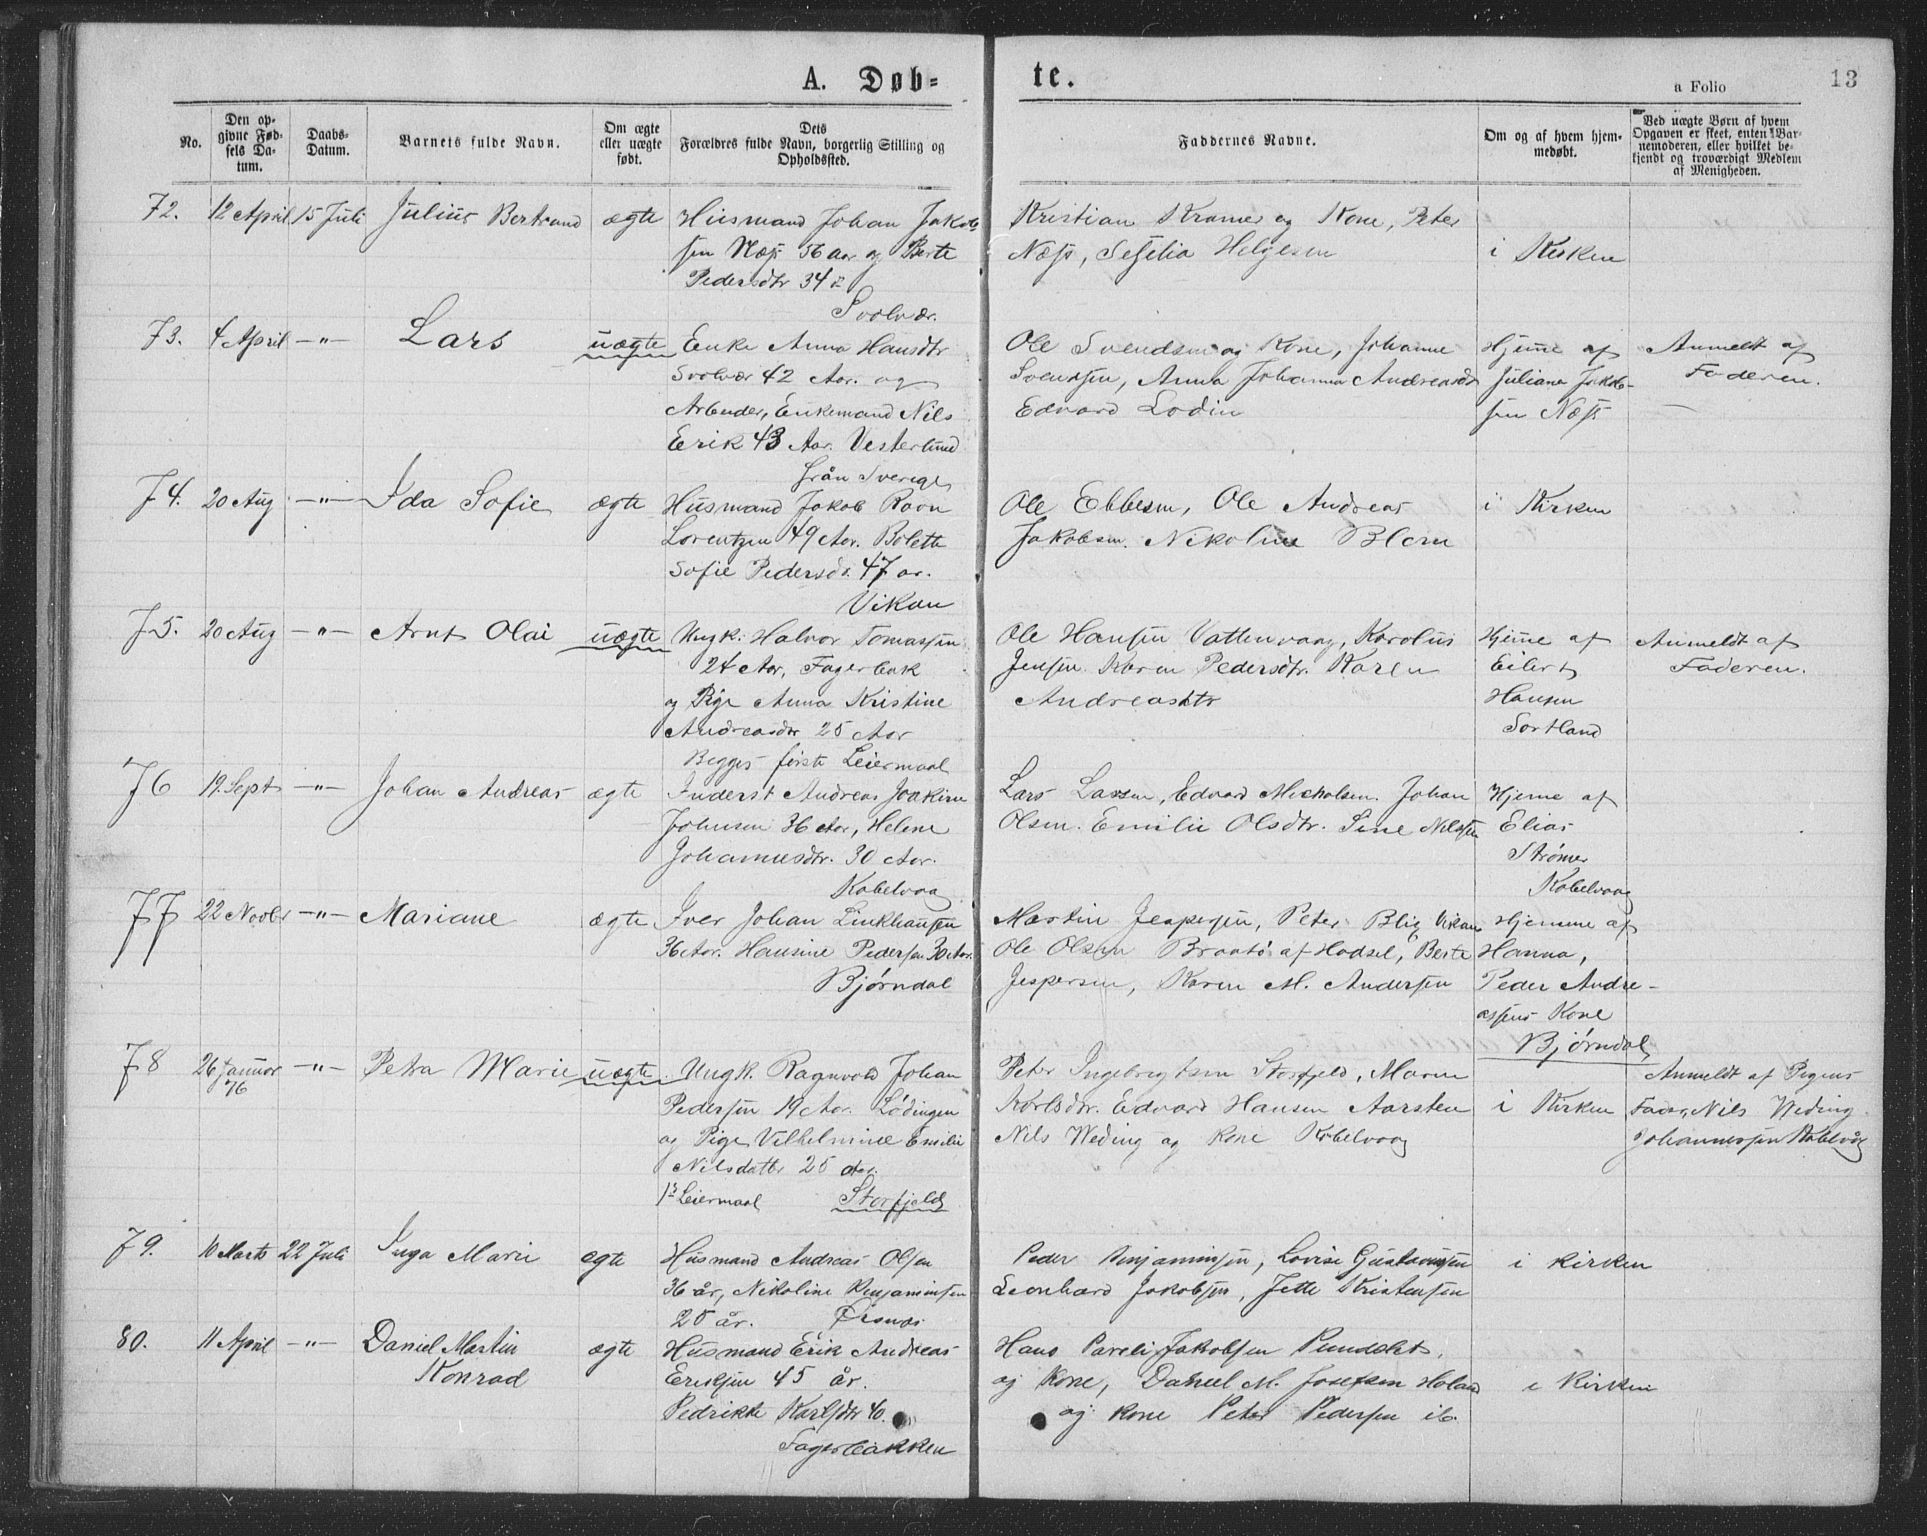 A. Døb-
te.
a Folio
13
No.
Den op-
givne Fød-
sels Da-
tum.
Daabs-
Datum.
Barnets fulde Navn.
Om ægte
eller uægte
født.
Dets
Forældres fulde Navn, borgerlig Stilling og
Opholdssted.
Faddernes Navne.
Om og af hvem hjem-
medøbt.
Ved uægte Børn af hvem
Opgaven er skeet, enten Bar-
nemoderen, eller hvilket be-
kjendt og troværdigt Medlem
af Menigheden.
72. 12 April 15 Juli Julius Bertrand ægte
Husmand Johan Jakob-
sen Næss 36 aar og Berte
Pedersdtr 34
Svolvær.
Kristian Kramer og Kone, Peter
Næss, Sesilia Helgesen
i Kirken
73. 4 April -"- Lars uægte
Enke Anna Hansdtr
Svolvær 42 Aar. og
Arbeider, Enkemand Nils
Erik 43 Aar. Vesterlund
från Sverige
Ole Svendsen og Kone, Johanne
Svensen, Anna Johanna Andreasdr
Edvard Lodin
Hjeme af
Juliana Jakob-
sen Næss
Anmeldt af
Faderen.
74. 20 Aug -"- Ida Sofie ægte
Husmand Jakob Ravn
Lorentzen 49 Aar. Bolette
Sofie Pedersdr. 47 ar.
Vikan
Ole Ebbesen, Ole Andreas
Jakobsen. Nikoline Blom
i Kirken
75. 20 Aug -"- Arnt Olai uægte
Ungk. Halvor Tomassen
24 Aar, Fagerbak
og Pige Anna Kristine
Andreasdr 25 Aar
Begges første Leiermaal
Ole Hansen Vattenvaag, Karolus
Jensen. Karen Pedersdtr. Karen
Andreasdtr
Hjeme af
Eilert
Hansen
Sortland
Anmeldt af
Faderen.
76 19. Sept -"- Johan Andreas ægte
Inderst Andreas Joakim
Johnsen 36 Aar, Helene
Johannesdtr. 30 Aar.
Kabelvaag
Lars Larsen, Edvard Mickolsen. Johan
Olsen. Emilie Olsdtr. Sine Nilssen
Hjeme af
Elias
Strømer
Kabelvaag
77 22 Novbr -"- Mariane ægte
Iver Johan Linkhausen
36 Aar. Hansine Pedersen 30 Aar.
Bjørndal
Martin Jespersen, Peter Blix Vikan
Ole Olsen Brattø af Hadsel, Berte
Jespersen, Karen M. Andersen
Hjemme af
Hanna,
Peder Andre-
assens Kone
Bjørndal
78 26 Januar -"- Petra Marie uægte
76
Ungk. Ragnvald Johan
Pedersen 19 Aar. Lødingen
og Pige Vilhelmine Emilie
Nilsdatter 25 Aar.
1ste Leiermaal Storfjeld
Peter Ingebrigtsen Storfjeld, Maren
Karlsdtr. Edvard Hansen Aarsten
Nils Weding og Kone Kabelvaag
i Kirken
Anmeldt af Pigens
Fader, Nils Weding
Johannessen Kabelvåg
79. 10 Marts 22 Juli Inga Marie ægte
Husmand Andreas Olsen
36 år, Nikoline Benjaminsen
25 år. Ørsnes
Peder Benjaminsen, Lovise Gustavsen
Leonhard Jakobsen, Jette Kristensen
i kirken
80. 11 April -"- Daniel Martin
Konrad
ægte
Husmand Erik Andreas
Eriksen 45 år.
Pedrikke Karlsdtr 40.
Fagerbakken
Hans Pareli Jakobsen Pundslet,
og Kone, Daniel M. Josefsen Holand
og kone Peter Pedersen ib.
i Kirken